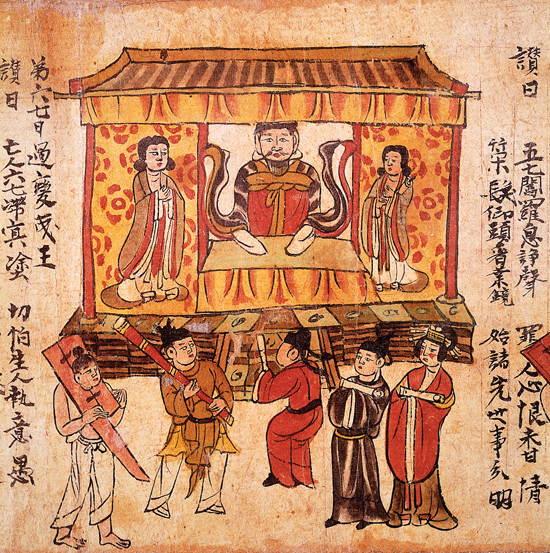 讚曰 五七閻羅息諍聲 罪人心恨未甘情
策髮仰頭看業鏡 始諸先世事分明
第六七日過變成王
讚曰 亡人六七滯冥塗 切怕生人執意愚